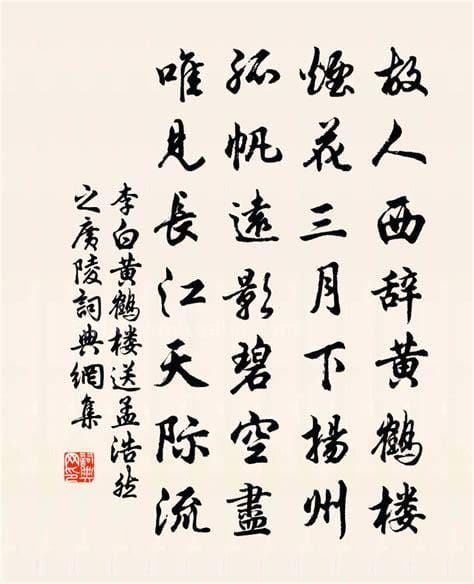 故人西辞黄鹤楼
煙花三月下揚州
孤帆遠影碧空盡
唯見長江天际流
李白黄鶴楼送孟浩然
之廣陵詞典網集